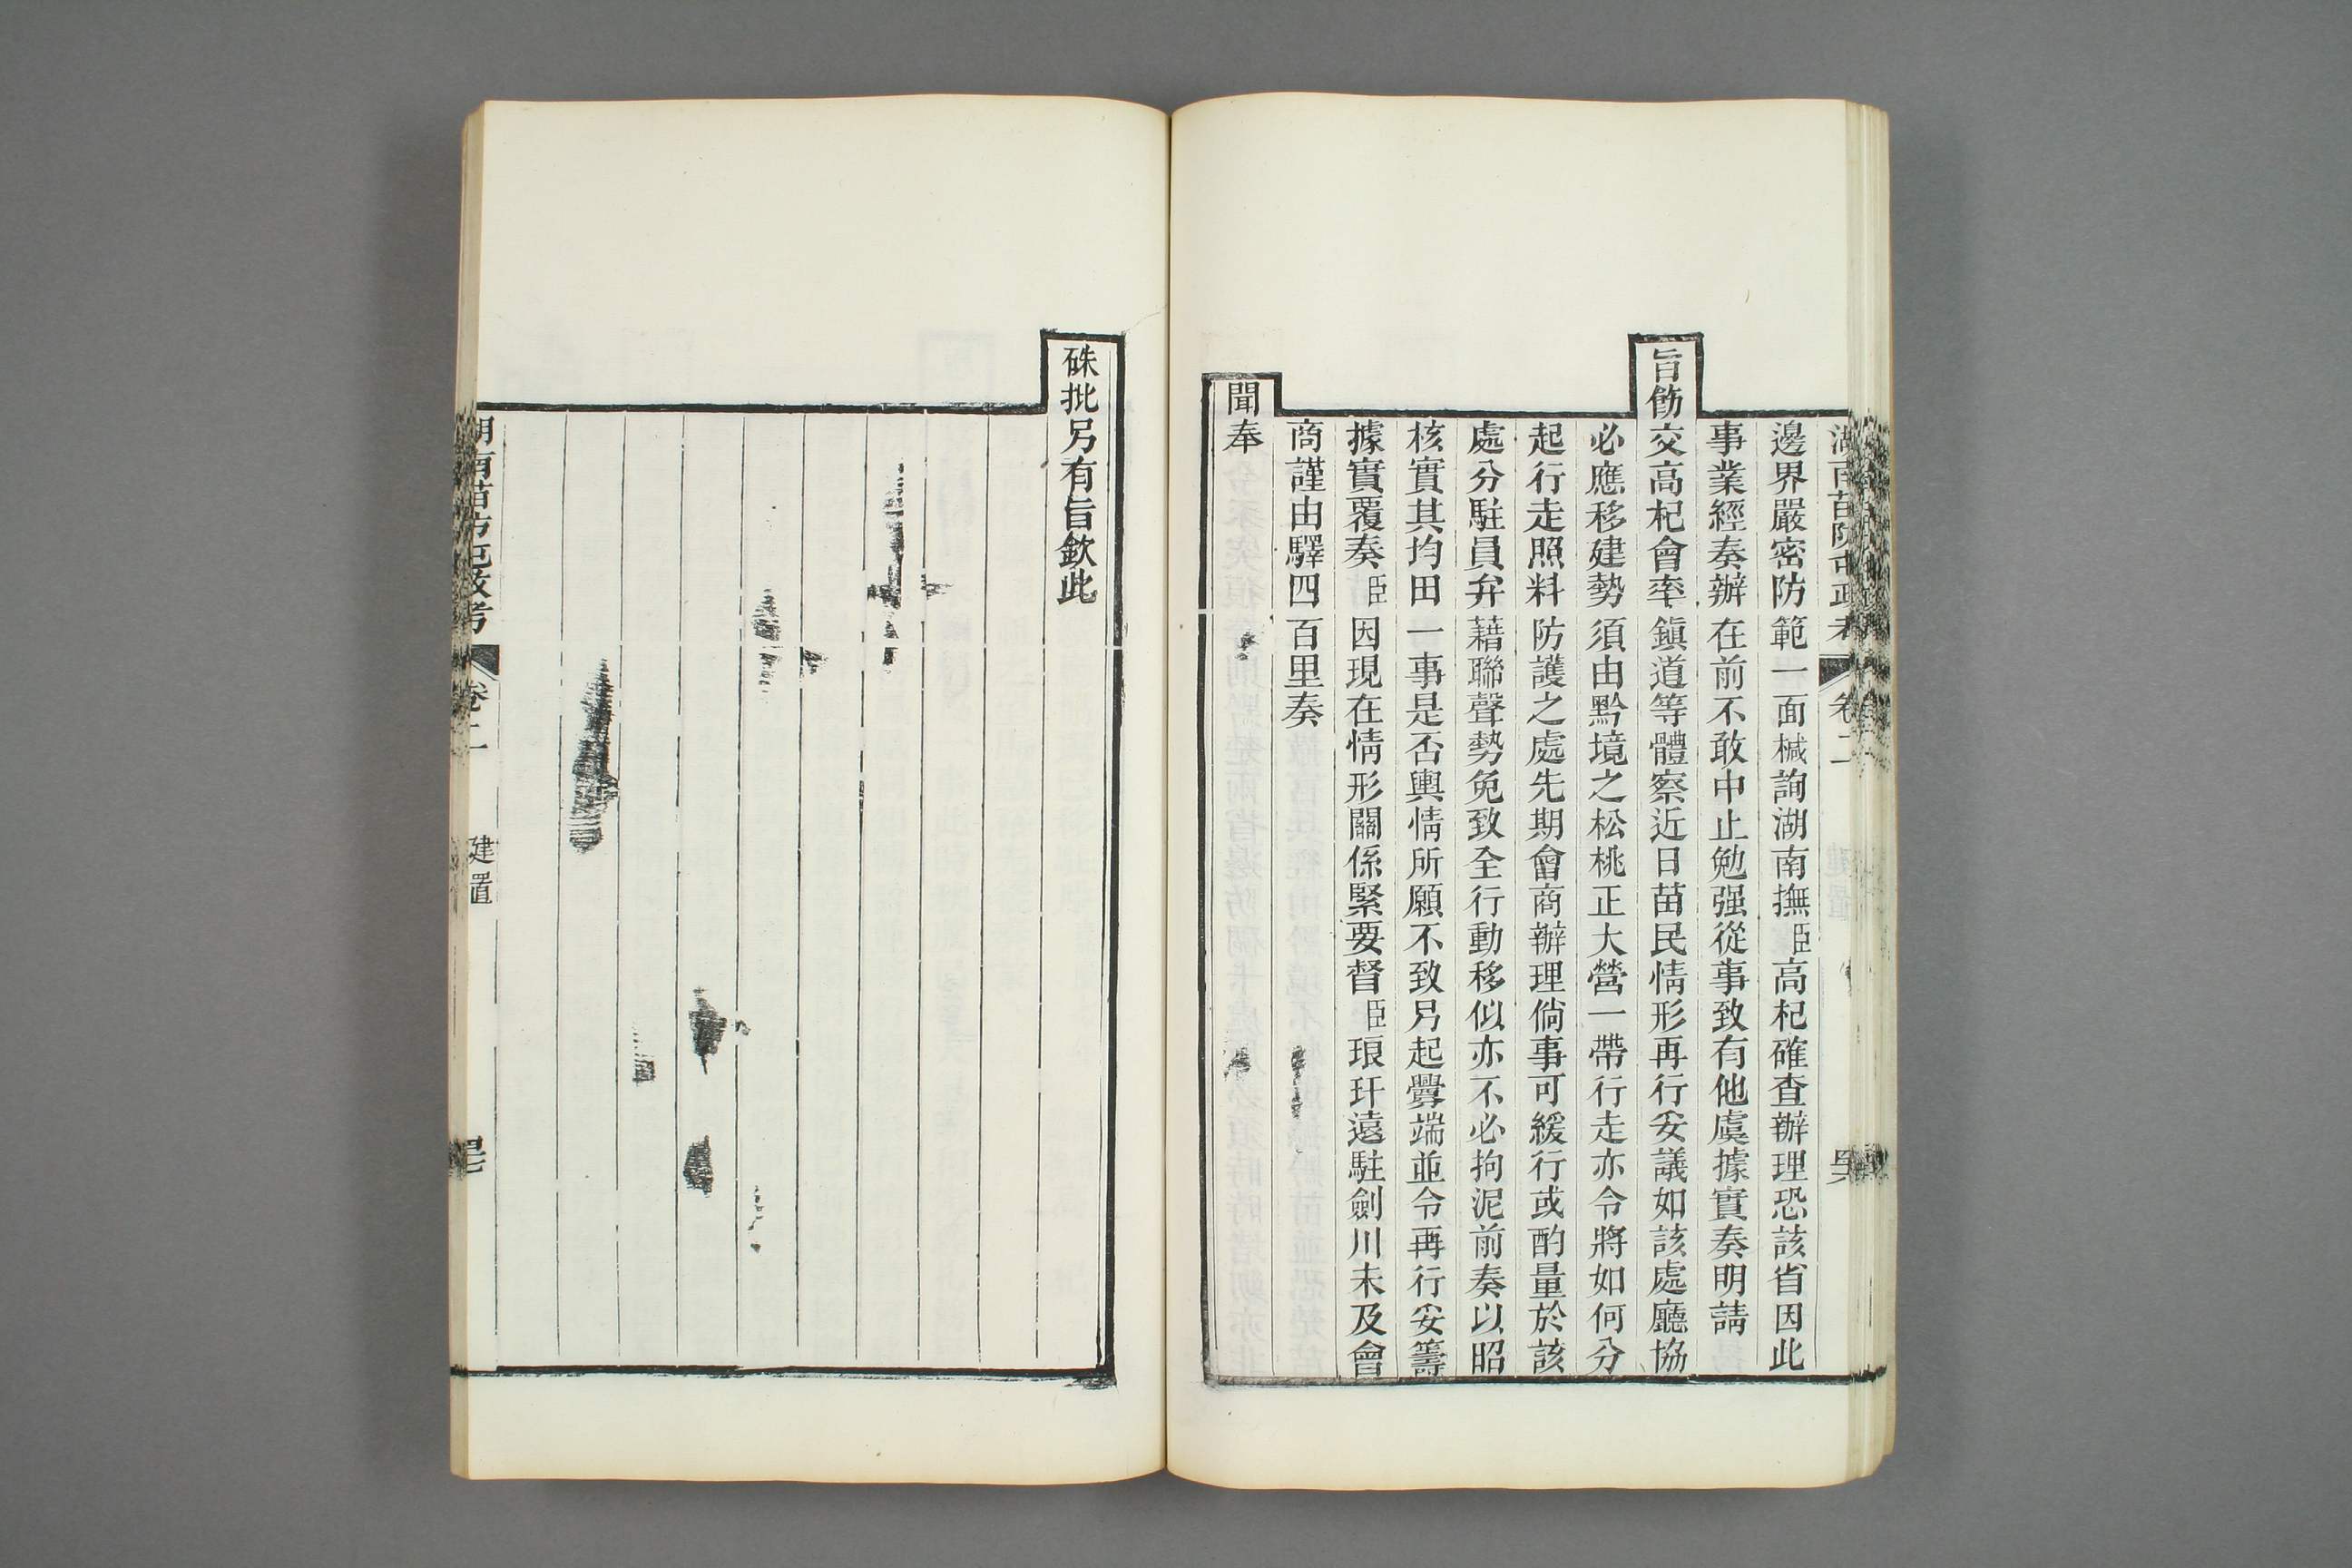 湖南苗防屯政考 卷二
邊界嚴密防範一面椷詢湖南撫臣高杞確查辦理恐該省因此
事業經奏辦在前不敢中止勉强從事致有他虞據實奏明請
旨飭交高杞會率鎭道等體察近日苗民情形再行妥議如該處廳協
必應移建勢須由黔境之松桃正大營一帶行走亦令將如何分
起行走照料防護之處先期會商辦理倘事可緩行或酌量於該
處分駐員弁藉聯聲勢免致全行動移似亦不必拘泥前奏以昭
核實其均田一事是否輿情所願不致另起釁端並令再行妥籌
據實覆奏臣因現在情形關係緊要督臣琅玕遠駐劍川未及會
商謹由驛四百里奏
聞奉
硃批另有旨欽此
湖南苗防屯政考 卷二 建置